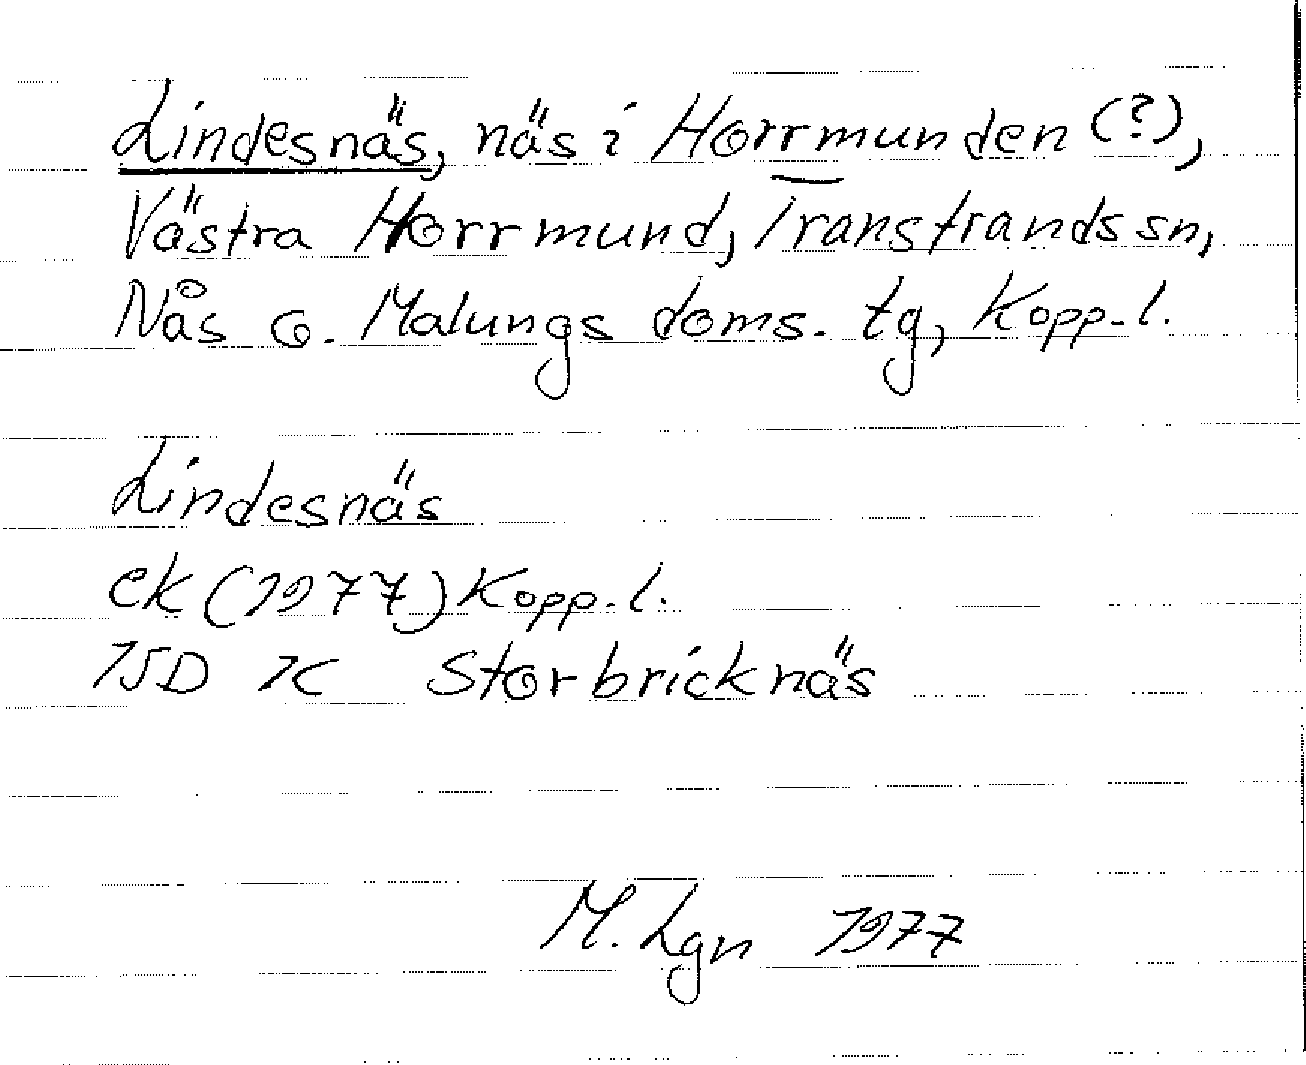 Lindesnäs, näs i Horrmunden (?),
Västra Horrmund, Transtrands sn,
Nås o. Malungs doms. tg, Kopp. l.
Lindesnäs
ek (1977) Kopp. l.
15D 7C Storbricknäs
M. Lgn 1977